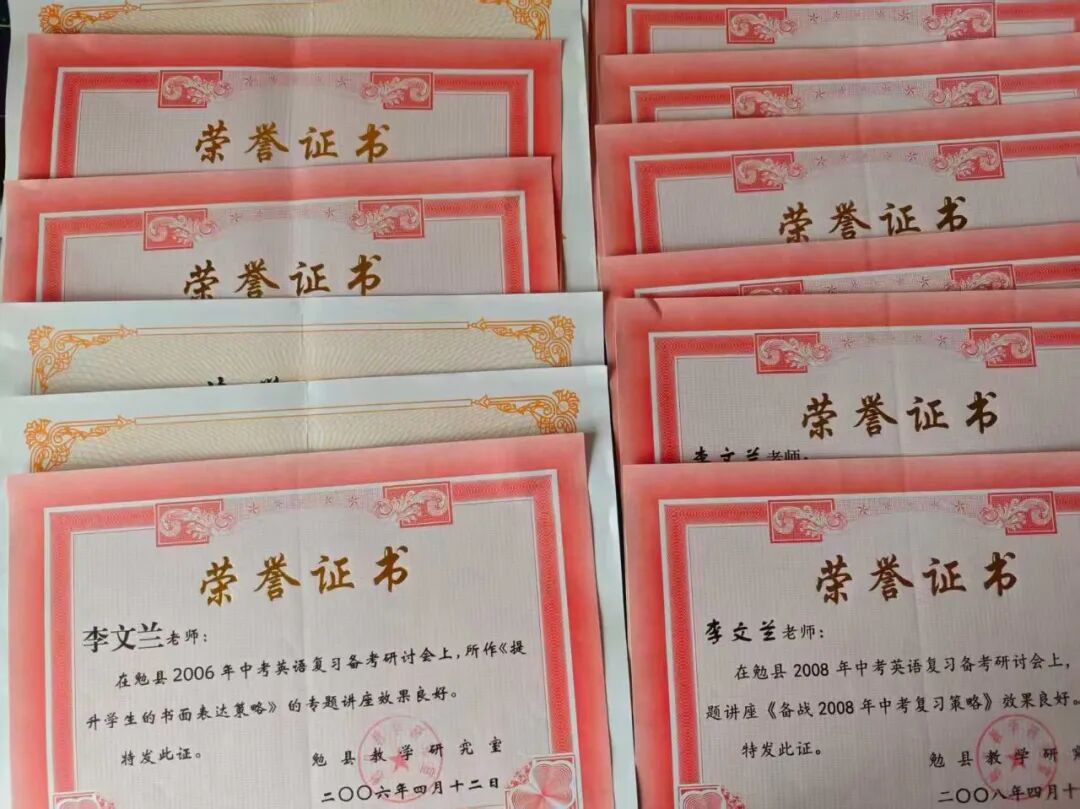 荣誉证书
荣誉证书
荣誉证书
李文兰老师：
在勉县2006年中考英语复习备考研讨会上，所作《提
升学生的书面表达策略》的专题讲座效果良好。
特发此证。
勉县教学研究室
二〇〇六年四月十二日
荣誉证书
荣誉证书
李文兰老师：
荣誉证书
李文兰老师：
在勉县2008年中考英语复习备考研讨会上，
题讲座《备战2008年中考复习策略》效果良好。
特发此证。
勉县教学研究
二〇〇八年四月十